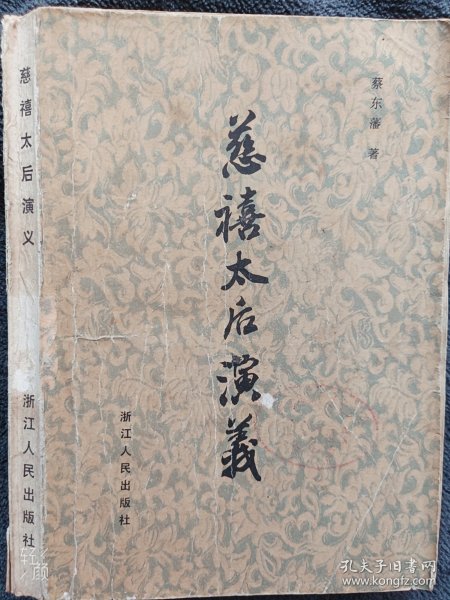 慈禧太后演义
浙江人民出版社
蔡东藩 著
慈禧太后演義
浙江人民出版社
轻颜
孔夫子旧书网
www.kongfz.com